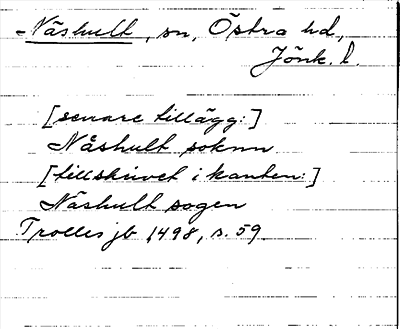 Näshult, sn, Östra hd,
Jönk. l.
[senare tillägg:]
Nåshult soknn
[tillskrivet i kanten:]
Näshult sogen
Trolles jb 1498, s. 59